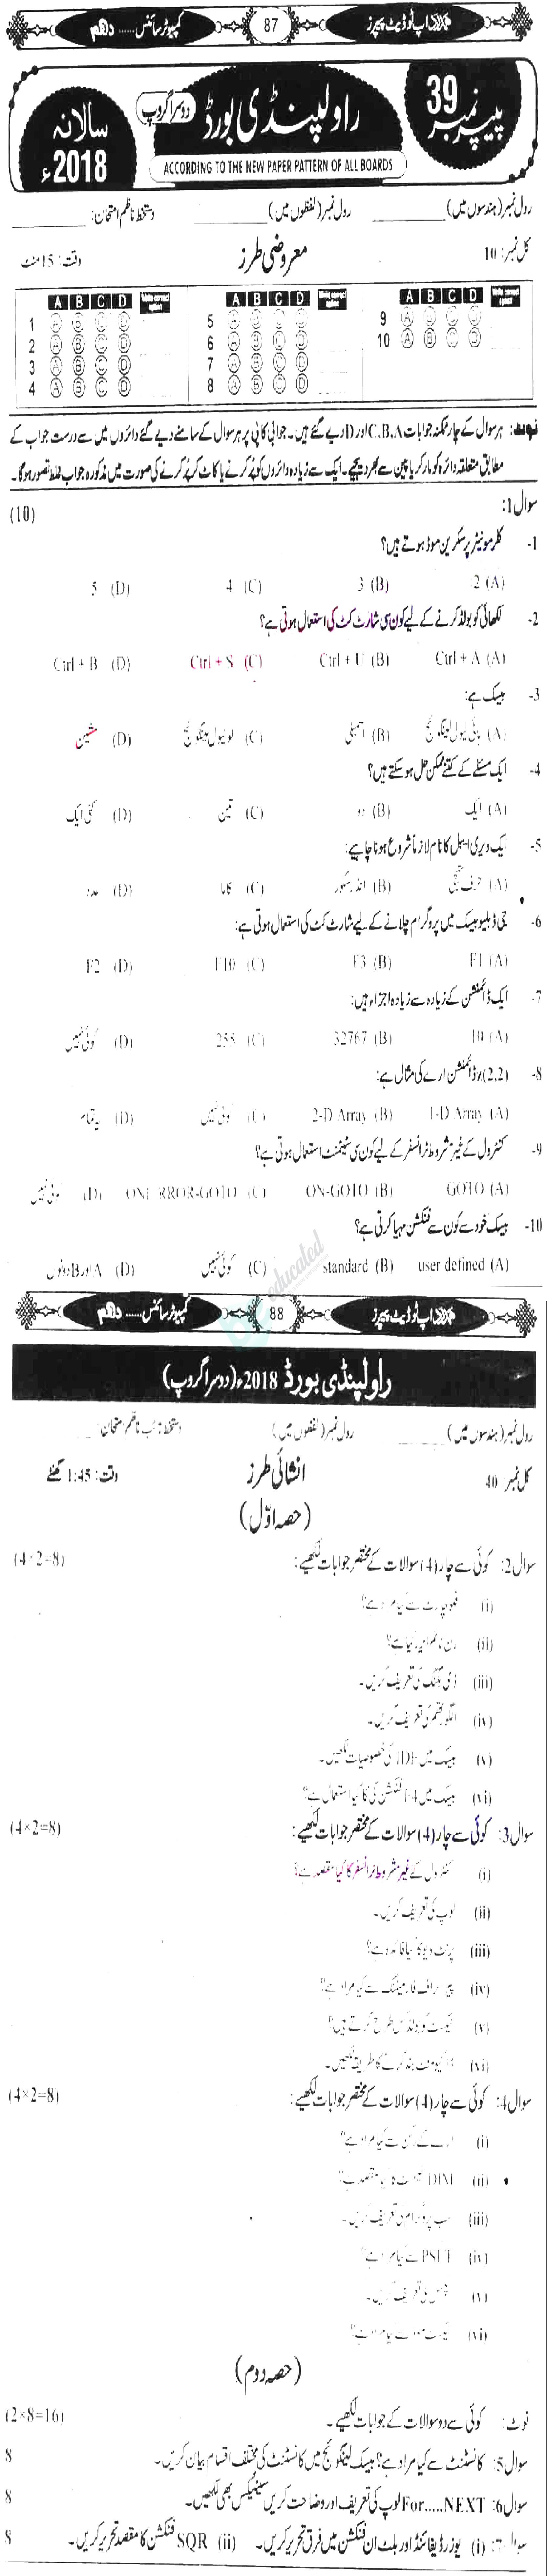 کمپیوٹر سائنس ..... دہم 87 ہمدرد اپ ٹو ڈیٹ پیپرز
پیپر نمبر 39
راولپنڈی بورڈ
دوسرا گروپ
سالانہ 2018ء
ACCORDING TO THE NEW PAPER PATTERN OF ALL BOARDS
رول نمبر (ہندسوں میں) ________ رول نمبر (لفظوں میں) ________ دستخط ناظم امتحان: ________
کل نمبر: 10 معروضی طرز وقت: 15 منٹ
A B C D Write correct option A B C D Write correct option A B C D Write correct option
1 A B C D 5 A B C D 9 A B C D
2 A B C D 6 A B C D 10 A B C D
3 A B C D 7 A B C D
4 A B C D 8 A B C D
نوٹ: ہر سوال کے چار ممکنہ جوابات C،B،A اور D دیے گئے ہیں۔ جوابی کاپی پر ہر سوال کے سامنے دیے گئے دائروں میں سے درست جواب کے
مطابق متعلقہ دائرہ کو مارکر یا پین سے بھر دیجیے۔ ایک سے زیادہ دائروں کو پُر کرنے یا کاٹ کر پُر کرنے کی صورت میں مذکورہ جواب غلط تصور ہوگا۔
سوال 1: (10)
1- کلر مونیٹر پر سکرین موڈ ہوتے ہیں؟
(A) 2 (B) 3 (C) 4 (D) 5
2- لکھائی کو بولڈ کرنے کے لیے کون سی شارٹ کٹ کی استعمال ہوتی ہے؟
(A) Ctrl + A (B) Ctrl + U (C) Ctrl + S (D) Ctrl + B
3- بیسک ہے:
(A) ہائی لیول لینگوئج (B) اسمبلی (C) لو لیول لینگوئج (D) مشین
4- ایک مسئلے کے کتنے ممکن حل ہو سکتے ہیں؟
(A) ایک (B) دو (C) تین (D) کئی ایک
5- ایک ویری ایبل کا نام لازماً شروع ہونا چاہیے:
(A) حرف تہجی (B) انڈر سکور (C) کاما (D) عدد
6- جی ڈبلیو بیسک میں پروگرام چلانے کے لیے شارٹ کٹ کی استعمال ہوتی ہے:
(A) F1 (B) F3 (C) F10 (D) F2
7- ایک ڈائمنشن کے زیادہ سے زیادہ اجزاء ہیں:
(A) 10 (B) 32767 (C) 255 (D) کوئی نہیں
8- (2,2)R ڈائمنشن ارے کی مثال ہے:
(A) 1-D Array (B) 2-D Array (C) کوئی نہیں (D) یہ تمام
9- کنٹرول کے غیر مشروط ٹرانسفر کے لیے کون سی سٹیٹمنٹ استعمال ہوتی ہے؟
(A) GOTO (B) ON-GOTO (C) ON ERROR-GOTO (D) کوئی نہیں
10- بیسک خود سے کون سے فنکشن مہیا کرتی ہے؟
(A) user defined (B) standard (C) کوئی نہیں (D) A اور B دونوں
educated
کمپیوٹر سائنس ..... دہم 88 ہمدرد اپ ٹو ڈیٹ پیپرز
راولپنڈی بورڈ 2018ء (دوسرا گروپ)
رول نمبر (ہندسوں میں) ________ رول نمبر (لفظوں میں) دستخط نائب ناظم امتحان:
کل نمبر: 40 انشائی طرز وقت: 1:45 گھنٹے
(حصہ اوّل)
سوال 2: کوئی سے چار (4) سوالات کے مختصر جوابات لکھیے: (4×2=8)
(i) فلوچارٹ سے کیا مراد ہے؟
(ii) رن ٹائم ایرر کیا ہے؟
(iii) ڈی بگنگ کی تعریف کریں۔
(iv) الگورتھم کی تعریف کریں۔
(v) بیسک میں IDE کی خصوصیات لکھیں۔
(vi) بیسک میں F4 فنکشن کی کا کیا استعمال ہے؟
سوال 3: کوئی سے چار (4) سوالات کے مختصر جوابات لکھیے: (4×2=8)
(i) کنٹرول کے غیر مشروط ٹرانسفر کا کیا مقصد ہے؟
(ii) لوپ کی تعریف کریں۔
(iii) پرنٹ ویو کا کیا فائدہ ہے؟
(iv) پیراگراف فارمیٹنگ سے کیا مراد ہے؟
(v) ٹیکسٹ کو بولڈ کس طرح کرتے ہیں؟
(vi) ڈاکیومنٹ بند کرنے کا طریقہ لکھیں۔
سوال 4: کوئی سے چار (4) سوالات کے مختصر جوابات لکھیے: (4×2=8)
(i) ارے کے رکن سے کیا مراد ہے؟
(ii) DIM سٹیٹمنٹ کا کیا مقصد ہے؟
(iii) سب پروگرام کی تعریف کریں۔
(iv) PSET سے کیا مراد ہے؟
(v) کی تعریف کریں۔
(vi) ٹیکسٹ موڈ سے کیا مراد ہے؟
(حصہ دوم)
نوٹ: کوئی سے دو سوالات کے جوابات لکھیے۔ (2×8=16)
سوال 5: کانسٹنٹ سے کیا مراد ہے؟ بیسک لینگوئج میں کانسٹنٹ کی مختلف اقسام بیان کریں۔ 8
سوال 6: For.....NEXT لوپ کی تعریف اور وضاحت کریں سینٹیکس بھی لکھیں۔ 8
سوال 7: (i) یوزر ڈیفائنڈ اور بلٹ ان فنکشن میں فرق تحریر کریں۔ (ii) SQR فنکشن کا مقصد تحریر کریں۔ 8